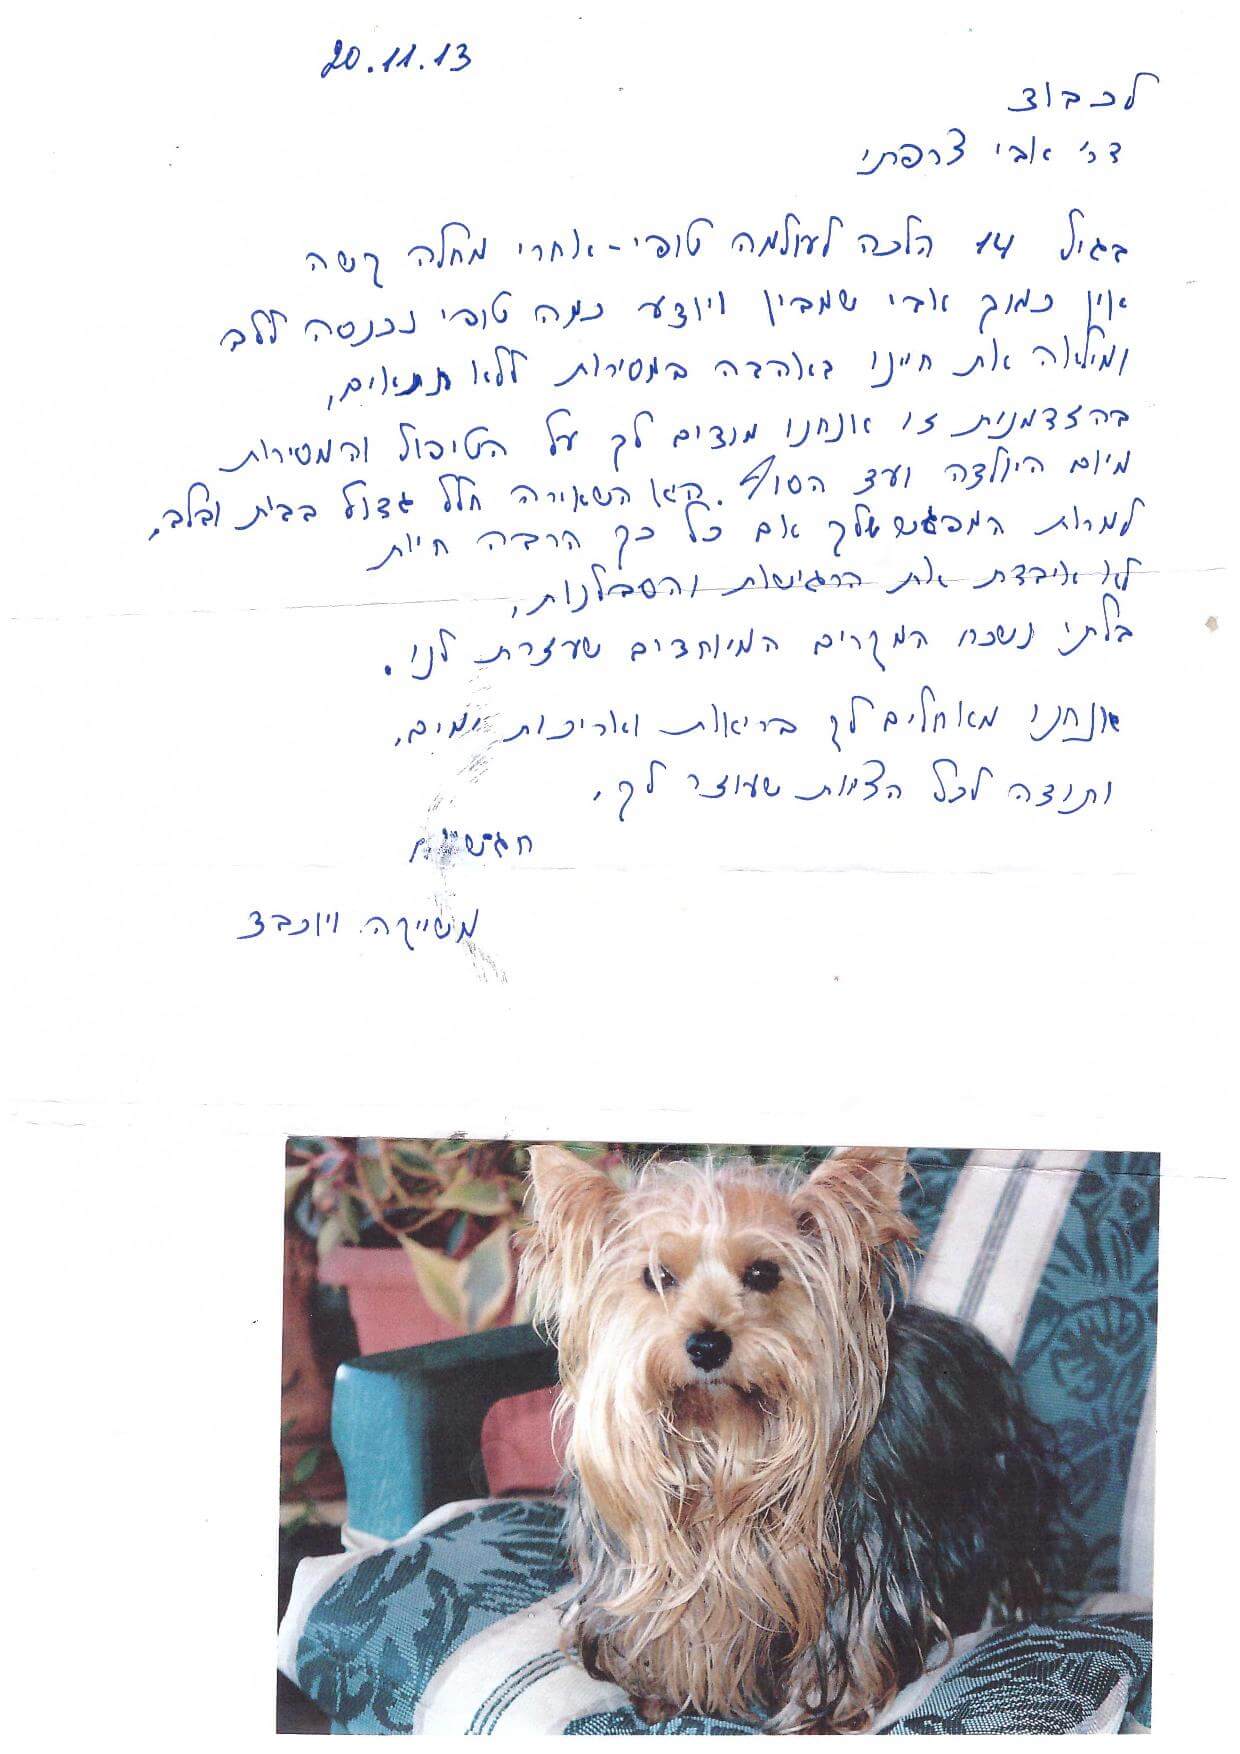 20.11.13
לכבוד
דר' אבי צרפתי
בגיל 14 הלכה לעולמה טופי - אחרי מחלה קשה
אין כמוך אבי שמבין ויודע כמה טופי נכנסה ללב
ומילאה את חיינו באהבה במסירות ללא תנאים,
בהזדמנות זו אנחנו מודים לך על הטיפול והמסירות
מיום היולדה ועד הסוף. היא השאירה חלל גדול בבית ובלב.
למרות המפגש שלך אם כל כך הרבה חיות
לא איבדת את הרגישות והסבלנות,
בלתי נשכח המקרים המיוחדים שעזרת לנו.
אנחנו מאחלים לך בריאות ואריכות ימים.
ותודה לכל הצוות שעוזר לך.
משייקה ויוכבד